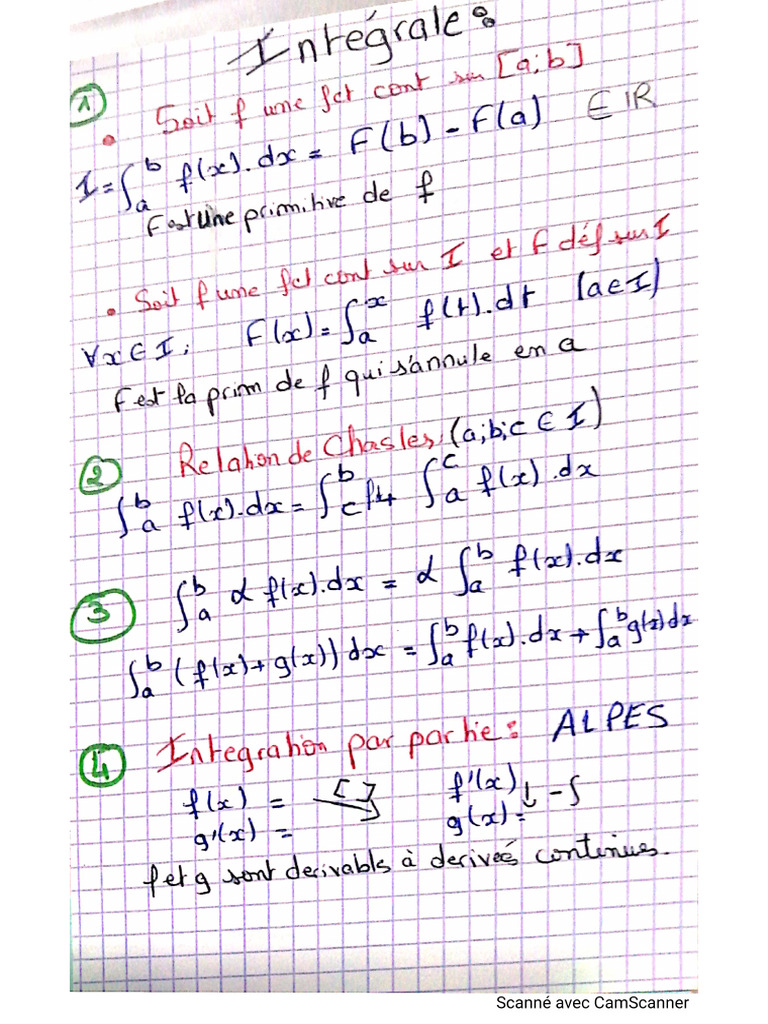 Intégrale :
① • Soit f une fct cont sur [a;b]
I = ∫_a^b f(x).dx = F(b) - F(a) ∈ IR
F est une primitive de f
• Soit f une fct cont sur I et F déf sur I
∀x ∈ I ; F(x) = ∫_a^x f(t).dt (a ∈ I)
F est la prim de f qui s'annule en a
② Relation de Chasles (a;b;c ∈ I)
∫_a^b f(x).dx = ∫_c^b + ∫_a^c f(x).dx
③ ∫_a^b α f(x).dx = α ∫_a^b f(x).dx
∫_a^b (f(x) + g(x)) dx = ∫_a^b f(x).dx + ∫_a^b g(x)dx
④ Integration par partie : ALPES
f(x) = [ ] f'(x) ↓ - ∫
g'(x) = g(x) =
f et g sont derivables à derivés continues.
Scanné avec CamScanner